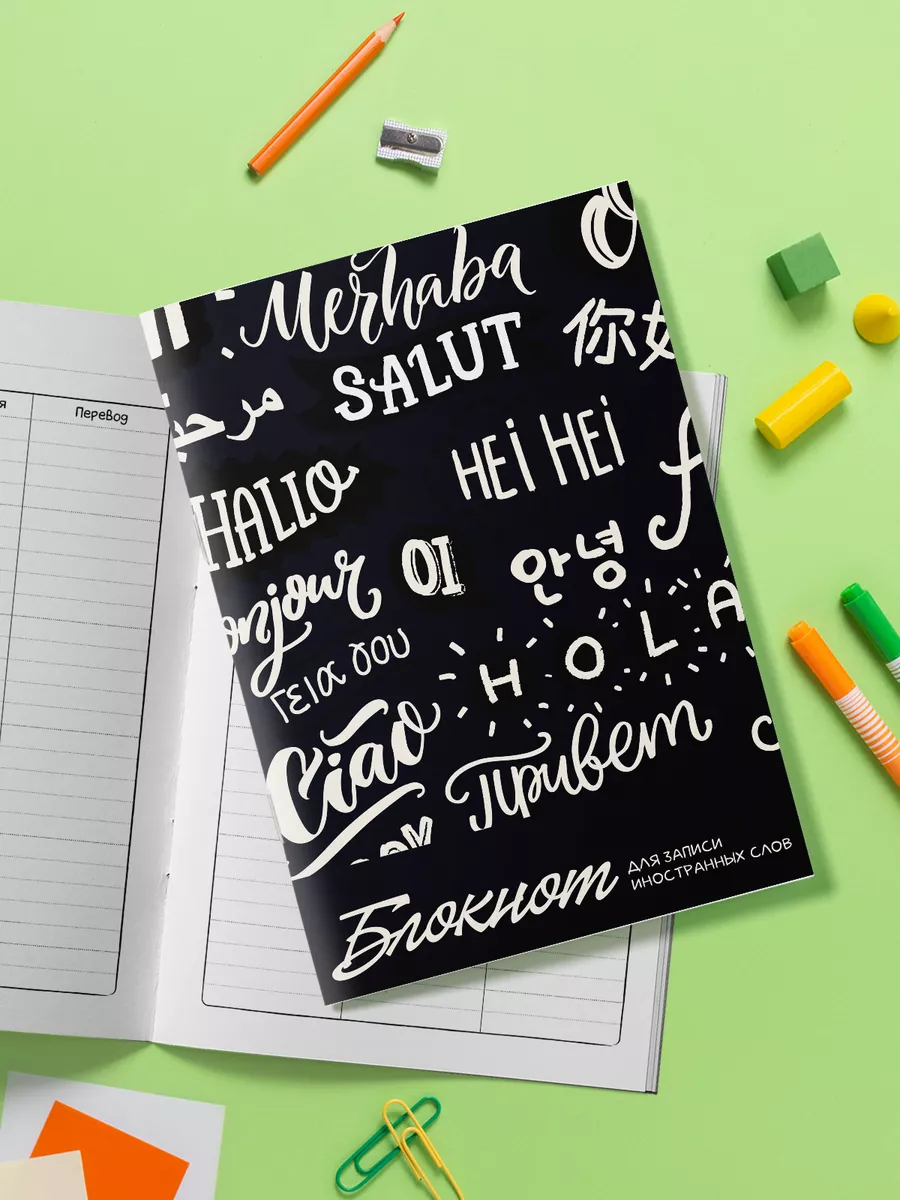 Merhaba
SALUT
你好
مرحبا
HALLO
HEi HEi
Bonjour
OI
안녕
Γεια σου
HOLA
Ciao
Привет
Блокнот
для записи
иностранных слов
Перевод